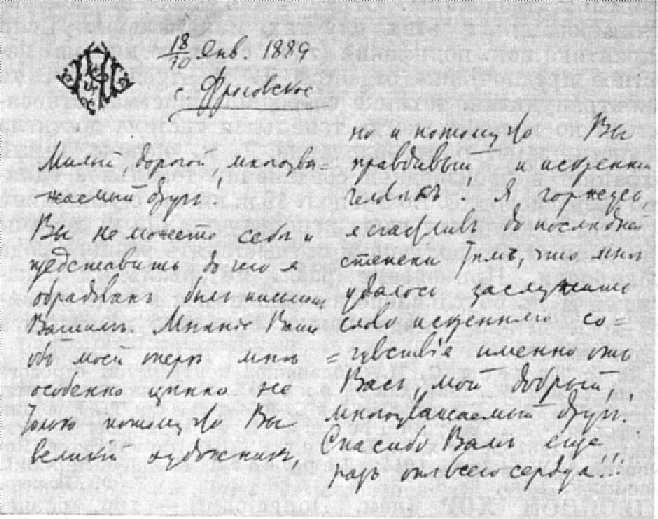 18/10 Янв. 1889
с. Фроловское
Милый, дорогой, многоува=
жаемый другъ!
Вы не можете себѣ и
представить до чего я
обрадованъ былъ письмомъ
Вашимъ. Мнѣніе Ваше
объ моей оперѣ мнѣ
особенно цѣнно не
только потому что Вы
великій художникъ,
но и потому что Вы
правдивый и искренній
человѣкъ! Я горжусь,
я счастливъ до послѣдней
степени тѣмъ, что мнѣ
удалось заслужить
слово искренняго со=
=чувствія именно отъ
Васъ, мой добрый,
многоуважаемый другъ.
Спасибо Вамъ еще
разъ отъ всего сердца!!!